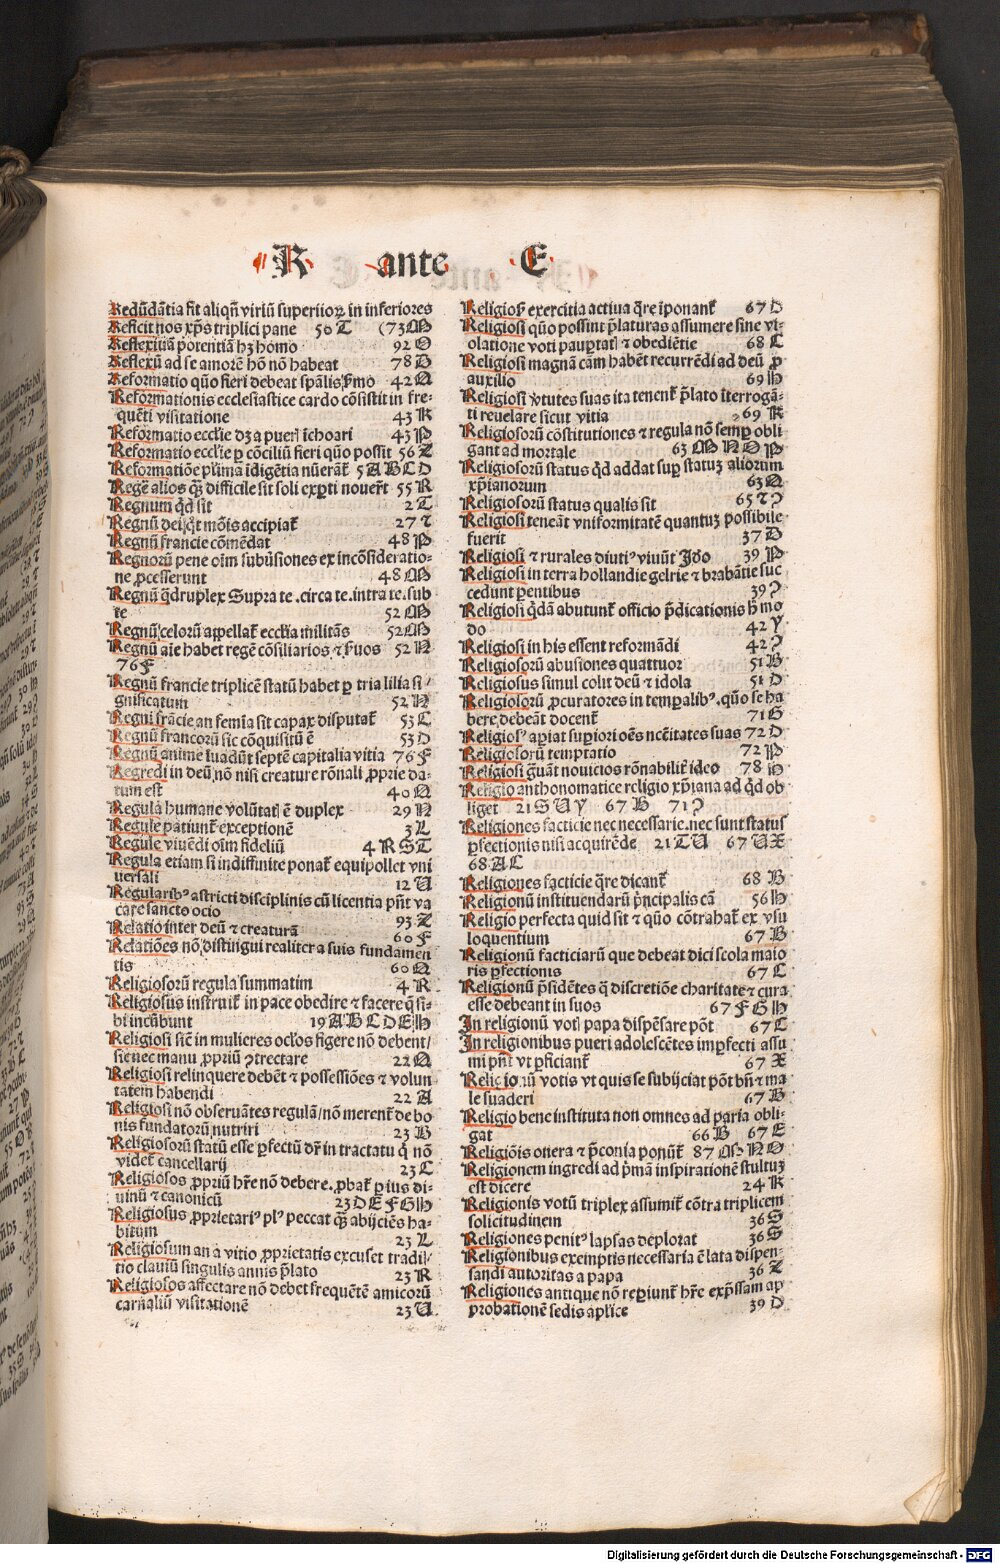 R ante E
Redūdātia fit aliqn̄ viriū superiorꝝ in inferiores
Reficit nos xp̄s triplici pane 50 T (73 M
Reflexiuū potentiā hꝫ homo 92 O
Reflexū ad se amorē hō nō habeat 78 D
Reformatio quō fieri debeat sp̄alis ẜmo 42 Q
Reformationis ecclesiastice cardo cōsistit in fre-
quēti visitatione 43 K
Reformatio eccl'ie dꝫ a pueris īchoari 43 P
Reformatio eccl'ie ꝑ cōciliū fieri quō possit 56 Z
Reformatiōe plurima īdigētia nūerāt᷑ 5 A B C D
Regē alios qꝫ difficile sit soli exꝑti nouer̄t 55 R
Regnum qd̄ sit 2 T
Regnū dei qt mōis accipiat᷑ 27 τ
Regnū francie cōmēdat᷑ 48 P
Regnorū pene oīm subūsiones ex incōsideratio-
ne ꝓcesserunt 48 M
Regnū qdruplex Supra te .circa te .intra te .sub
te 52 M
Regnū celorū appellat᷑ eccl'ia militās 52 M
Regnū aīe habet regē cōsiliarios ⁊ ẜuos 52 N
76 F
Regnū francie triplicē statū habet ꝑ tria lilia si/
gnificatum 52 N
Regni frācie an femīa sit capax disputat᷑ 53 C
Regnū francorū sic cōquisitū ē 53 D
Regnū anime īuadūt septē capitalia vitia 76 F
Regredi in deū nō nisi creature rōnali ꝓprie da-
tum est 40 Q
Regula humane volūtati ē duplex 29 N
Regule patiunt᷑ exceptionē 3 L
Regule viuēdi oīm fideliū 4 R S T
Regula etiam si indiffinite ponat᷑ equipollet vni
uersali 12 U
Regularibꝰ astricti disciplinis cū licentia pn̄t va
care sancto ocio 93 Z
Relatio inter deū ⁊ creaturā 60 F
Relatiōes nō distingui realiter a suis fundamen
tis 60 Q
Religiosorū regula summatim 4 R
Religiosus instruit᷑ in pace obedire ⁊ facere q̄ si-
bi incūbunt 19 A B C D E H
Religiosi siē in mulieres oc'los figere nō debent/
sic nec manu ꝓpriū ꝯtrectare 22 Q
Religiosi relinquere debēt ⁊ possessiōes ⁊ volun
tatem habendi 22 A
Religiosi nō obseruātes regulā/nō merent᷑ de bo
nis fundatorū nutriri 23 B
Religiosorū statū esse ꝑfectū dr̄ in tractatu q̄ nō
videt᷑ cancellarij 23 C
Religiosos ꝓpriū hr̄e nō debere .ꝓbat᷑ ꝑ ius di-
uinū ⁊ canonicū 23 D E F G H
Religiosus ꝓprietariꝰ plꝰ peccat qꝫ abijciēs ha-
bitum 23 L
Religiosum an a vitio ꝓprietatis excuset traditi/
tio clauiū singulis annis p̄lato 23 R
Religiosos affectare nō debet frequētē amicorū
carnaliū visitationē 23 U
Religiosis exercitia actiua q̄re īponant᷑ 67 D
Religiosi quō possint p̄laturas assumere sine vi-
olatione voti pauptatis ⁊ obediētie 68 C
Religiosi magnā cām habēt recurrēdi ad deū ꝓ
auxilio 69 H
Religiosi v̓tutes suas ita tenent᷑ p̄lato īterrogā-
ti reuelare sicut vitia 69 K
Religiosorū cōstitutiones ⁊ regula nō semꝑ obli
gant ad mortale 63 M N O P
Religiosorū status qd̄ addat suꝑ statuꝫ aliorum
xp̄ianorum 63 Q
Religiosorū status qualis sit 65 τ ?
Religiosi teneāt vniformitatē quantuꝫ possibile
fuerit 37 D
Religiosi ⁊ rurales diutiꝰ viuūt Ido 39 P
Religiosi in terra hollandie gelrie ⁊ brabātie suc
cedunt ꝑentibus 39 ?
Religiosi qdā abutunt᷑ officio p̄dicationis ẜmo
do 42 Y
Religiosi in his essent reformādi 42 ?
Religiosorū abusiones quattuor 51 B
Religiosus simul colit deū ⁊ idola 51 D
Religiosorū ꝓcuratores in temꝑalibꝰ .quō se ha
bere debeāt docent᷑ 71 G
Religiosꝰ aꝑiat suꝑiori oēs ncc̄itates suas 72 D
Religiosorū temptatio 72 P
Religiosi grauāt nouicios rōnabilit᷑ ideo 78 H
Religio anthonomatice religio xp̄iana ad qd̄ ob
liget 21 S U Y 67 B 71 ?
Religiones facticie nec necessarie .nec sunt status
ꝑfectionis nisi acquirēde 21 T U 67 U X
68 A C
Religiones facticie q̄re dicant᷑ 68 B
Religionū instituendarū p̄ncipalis cā 56 H
Religio perfecta quid sit ⁊ quō cōtrahat᷑ ex vsu
loquentium 67 B
Religionū facticiarū que debeat dici scola maio
ris ꝑfectionis 67 C
Religionū p̄sidētes q̄ discretiōe charitate ⁊ cura
esse debeant in suos 67 F G H
In religionū votis papa dispēsare pōt 67 C
In religionibus pueri adolescētes imꝑfecti assu
mi pn̄t vt ꝑficiant᷑ 67 X
Religionū votis vt quis se subijciat pōt bn̄ ⁊ ma
le suaderi 67 B
Religio bene instituta non omnes ad paria obli-
gat 66 B 67 E
Religiōis onera ⁊ p̄conia ponūt᷑ 87 M N O
Religionem ingredi ad p̄mā inspirationē stultuꝫ
est dicere 24 K
Religionis votū triplex assumit᷑ cōtra triplicem
solicitudinem 36 S
Religiones penitꝰ lapsas deplorat 36 S
Religionibus exemptis necessaria ē lata dispen-
sandi autoritas a papa 36 Z
Religiones antique nō reꝑiunt᷑ hr̄e exp̄ssam ap
probationē sedis apl'ice 39 D
Digitalisierung gefördert durch die Deutsche Forschungsgemeinschaft - DFG